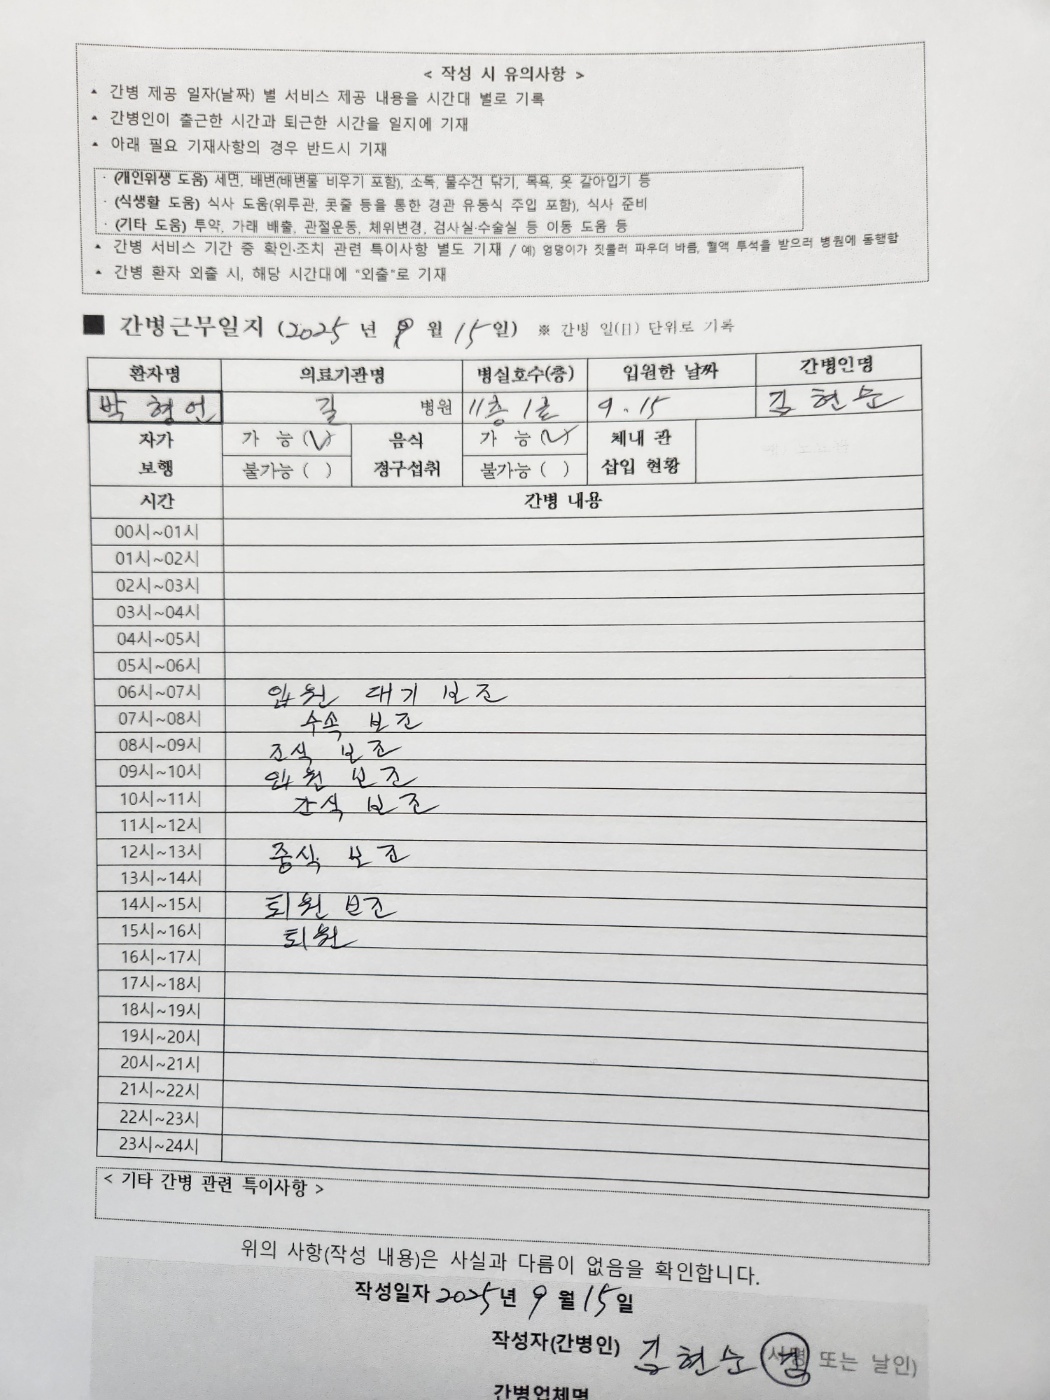 < 작성 시 유의사항 >
▲ 간병 제공 일자(날짜) 별 서비스 제공 내용을 시간대 별로 기록
▲ 간병인이 출근한 시간과 퇴근한 시간을 일지에 기재
▲ 아래 필요 기재사항의 경우 반드시 기재
· (개인위생 도움) 세면, 배변(배변물 비우기 포함), 소독, 물수건 닦기, 목욕, 옷 갈아입기 등
· (식생활 도움) 식사 도움(위루관, 콧줄 등을 통한 경관 유동식 주입 포함), 식사 준비
· (기타 도움) 투약, 가래 배출, 관절운동, 체위변경, 검사실·수술실 등 이동 도움 등
▲ 간병 서비스 기간 중 확인·조치 관련 특이사항 별도 기재 / 예) 엉덩이가 짓물러 파우더 바름, 혈액 투석을 받으러 병원에 동행함
▲ 간병 환자 외출 시, 해당 시간대에 "외출"로 기재
■ 간병근무일지 (2025 년 9 월 15일) ※ 간병 일(日) 단위로 기록
환자명 의료기관명 병실호수(층) 입원한 날짜 간병인명
박형언 길 병원 11층 9.15 김현순
자가 보행 가 능 (V) 음식 경구섭취 가 능 (V) 체내 관 삽입 현황
불가능 ( ) 불가능 ( )
시간 간병 내용
00시~01시
01시~02시
02시~03시
03시~04시
04시~05시
05시~06시
06시~07시 입원 대기 보조
07시~08시 수속 보조
08시~09시 조식 보조
09시~10시 입원 보조
10시~11시 간식 보조
11시~12시
12시~13시 중식 보조
13시~14시
14시~15시 퇴원 보조
15시~16시 퇴원
16시~17시
17시~18시
18시~19시
19시~20시
20시~21시
21시~22시
22시~23시
23시~24시
< 기타 간병 관련 특이사항 >
위의 사항(작성 내용)은 사실과 다름이 없음을 확인합니다.
작성일자 2025년 9 월 15일
작성자(간병인) 김현순 (서명 또는 날인)
간병업체명